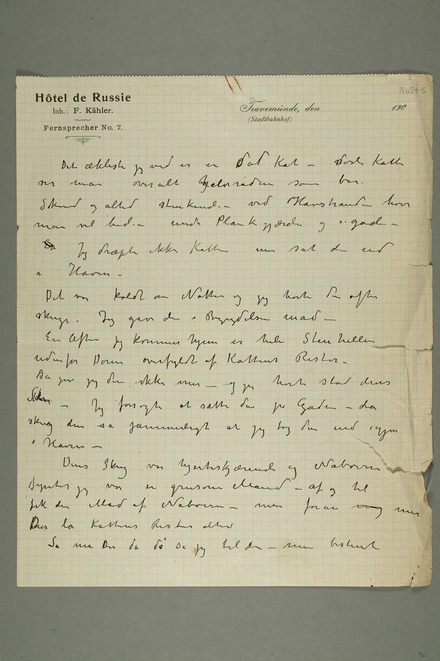 Hôtel de Russie
Inh.: F. Kähler.
Fernsprecher No. 7.
Travemünde, den 190
(Stadtbahnhof)
Det ækleste jeg ved er en død Kat – døde Katte
ser man overalt
og altid stinkende – ved Havstranden hvor
man vil bade – under Plankegjærder og i gader –
Jeg dræpte ikke Katten men sat den ud
i Haven –
Det var koldt om Natten og jeg hørte den efter
skrige. Jeg gav den i Begyndelsen mad –
En Aften jeg kommer hjem er hele Stenhellen
udenfor Døren overfyldt af Kattens Rester –
Da gav jeg den ikke mer – og jeg hørte stadig dens
Skrig – Jeg forsøgte at sætte den på Gaden – da
skreg den så jammerligt at jeg tog den ind igjen
i Haven –
Dens Skrig var hjerteskjærende og Naboerne
syntes jeg var en grusom Mand – af og til
fik den Mad af Naboerne – men foran
Dør lå Kattens Rester altid
Så må Du da dø sa jeg til den – men bestandig